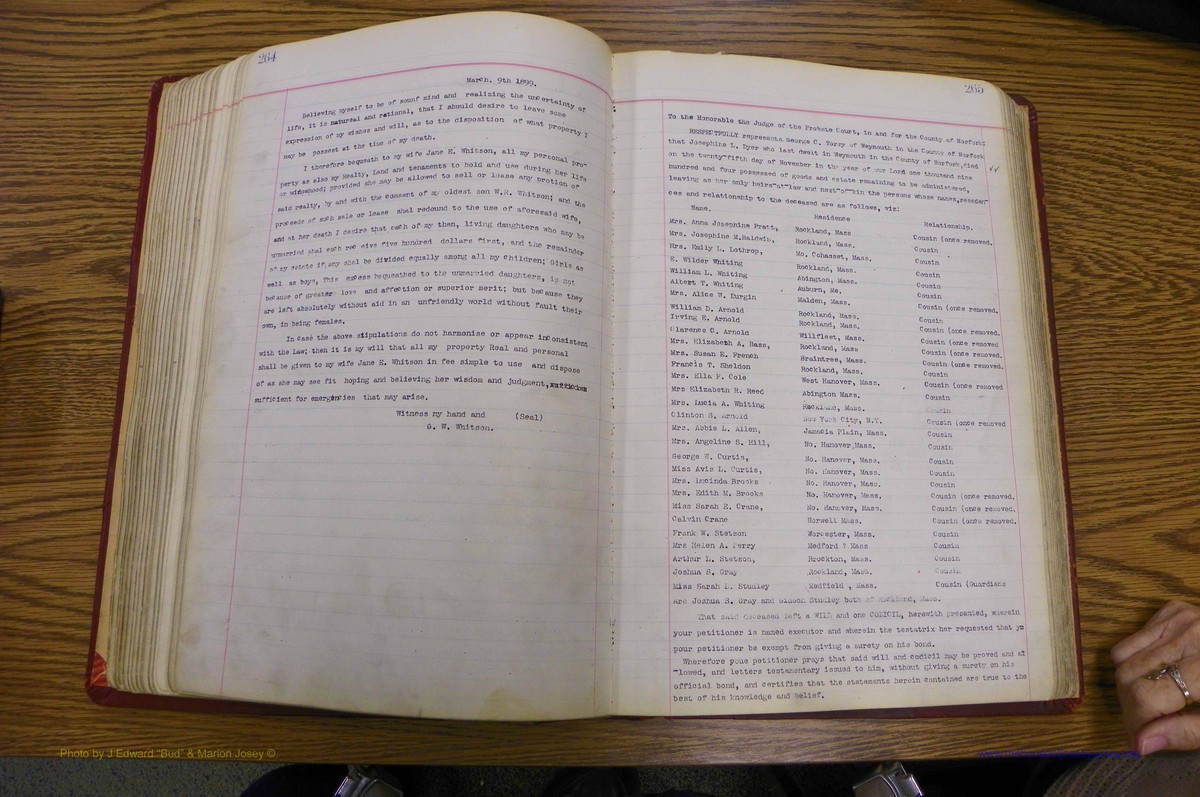 264
March. 9th 1899.
Believing myself to be of sounf mind and realizing the uncertainty of
life, it is natureal and rational, that I should desire to leave some
expression of my wishes and will, as to the disposition of what property I
may be possest at the time of my death.
I therefore bequeath to my wife Jane E. Whitson, all my personal pro-
perty as also my Realty, Land and tenaments to hold and use during her life
or widowhood; provided she may be allowed to sell or lease any protion of
said realty, by and with the consent of my oldest son W.R. Whitson; and the
proceeds of such sale or lease shal redound to the use of aforesaid wife,
and at her death I desire that each of my than, living daughters who may be
unmarried shal each rec eive five hundred dollars first, and the remainder
of my estate if any shal be divided equally among all my children; Girls as
well as boys, This excess bequeathed to the unmarried daughters, is not
because of greater love and affection or superior merit; but because they
are left absolutely without aid in an unfriendly world without fault their
own, in being females.
In case the above stipulations do not harmonise or appear inconsistent
with the Law; then it is my will that all my property Real and personal
shall be given to my wife Jane E. Whitson in fee simple to use and dispose
of as she may see fit hoping and believing her wisdom and judgment,
sufficient for emergencies that may arise.
Witness my hand and (Seal)
G. W. Whitson.
265
To the Honorable the Judge of the Probate Court, in and for the County of Norfork:
RESPECTFULLY represents George C. Torry of Weymouth in the County of Norfork
that Josephine L. Dyer who last dwelt in Weymouth in the County of Norfork,died
on the twenty-fifth day of November in the year of our Lord one thousand nine
hundred and four possessed of goods and estate remaining to be administered,
leaving as her only heirs-at-law and next-of-kin the persons whose names,residen-
ces and relationship to the deceased are as follows, viz:
Name. Residence Relationship.
Mrs. Anna Josephine Pratt, Rockland, Mass Cousin (once removed.
Mrs. Josephine M.Baldwin, Rockland, Mass. Cousin
Mrs. Emily L. Lothrop, No. Cohasset, Mass. Cousin
E. Wilder Whiting Rockland, Mass. Cousin
William L. Whiting Abington, Mass. Cousin
Albert T. Whiting Auburn, Me. Cousin
Mrs. Alice W. Durgin Malden, Mass. Cousin (once removed.
William D. Arnold Rockland, Mass. Cousin
Irving E. Arnold Rockland, Mass. Cousin (once removed.
Clarence C. Arnold Willfleet, Mass. Cousin (once removed
Mrs. Elizabeth A. Bass, Rockland, Mass Cousin (once removed.
Mrs. Susan E. French Braintree, Mass. Cousin (once removed.
Francis T. Sheldon Rockland, Mass. Cousin
Mrs. Ella F. Cole West Hanover, Mass. Cousin (once removed
Mrs Elizabeth R. Reed Abington Mass. Cousin
Mrs. Lucia A. Whiting Rockland, Mass. Cousin
Clinton S. Arnold New York City, N.Y. Cousin (once removed
Mrs. Abbie L. Allen, Jamacia Plain, Mass. Cousin
Mrs. Angeline S. Hill, No. Hanover,Mass. Cousin
George W. Curtis, No. Hanover, Mass. Cousin
Miss Avis L. Curtis, No. Hanover, Mass. Cousin
Mrs. Lucinda Brooks No. Hanover, Mass. Cousin
Mrs. Edith M. Brooks No. Hanover, Mass. Cousin (once removed.
Miss Sarah E. Crane, No. Hanover, Mass. Cousin (once removed.
Calvin Crane Norwell Mass. Cousin (once removed.
Frank W. Stetson Worcester, Mass. Cousin
Mrs Helen A. Perry Medford ? Mass Cousin
Arthur L. Stetson, Brockton, Mass. Cousin
Joshua S. Gray Rockland, Mass. Cousin
Miss Sarah L. Studley Medfield , Mass. Cousin (Guardians
are Joshua S. Gray and Gideon Studley both of Rockland, Mass.
That said deceased left a WILL and one CODICIL, herewith presented, wherein
your petitioner is named executor and wherein the testatrix her requested that yo
pour petitioner be exempt from giving a surety on his bond.
Wherefore yous petitioner prays that said will and codicil may be proved and al
-lowed, and letters testamentary issued to him, without giving a surety on his
official bond, and certifies that the statements herein contained are true to the
best of his knowledge and belief.
Photo by J Edward "Bud" & Marion Josey ©